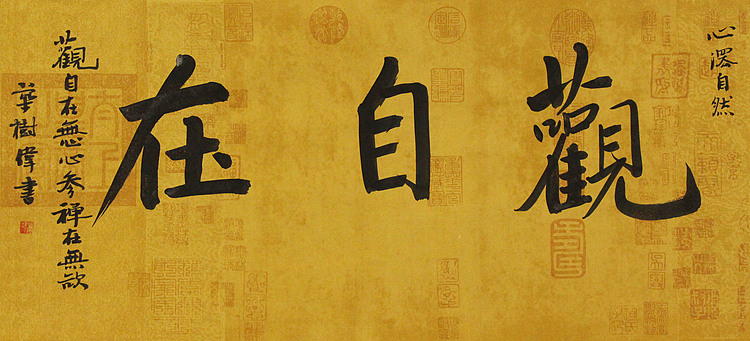 心自然
觀自在
觀自在無心參禪在無欲
葉樹偉書